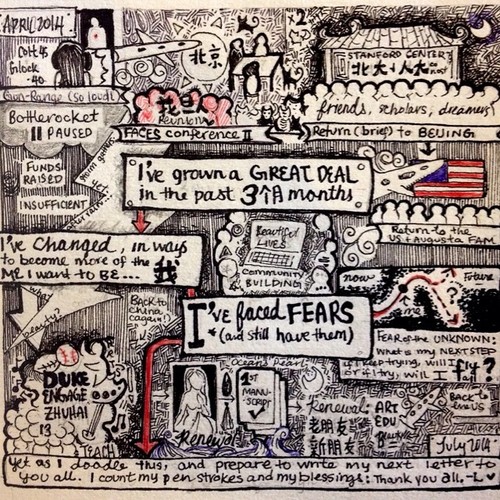 APRIL 2014
Colt 45
Glock
.40
x2
北京
STANFORD CENTER
北大
人大
Gun-Range (so loud!)
Bottlerocket
II PAUSED
Reunion
FACES conference II
friends, scholars, dreamers
Return (brief) to BEIJING
FUNDS
RAISED
INSUFFICIENT
I've grown a GREAT DEAL
in the past 3个月 months
I've changed, in ways
to become more of the 我
ME I want to BE...
Beautiful
LIVES
COMMUNITY
BUILDING
Return to the
US + Augusta FAM
now
me
?
Future
BACK to
China
(again!)
What
is
beauty?
I've faced FEARS
* (and still have them)
FEAR of the UNKNOWN:
What's my NEXT STEP
if I keep trying, will I fly
or if I try will I fall
DUKE
ENGAGE
ZHUHAI
13
TEACH
1ST
MANU-
SCRIPT
Renewal
Renewal:
老朋友
新朋友
ART
EDU
Back to
the US
July 2014
Yet as I doodle this, and prepare to write my next letter to
you all. I count my pen strokes and my blessings: Thank you all, -L